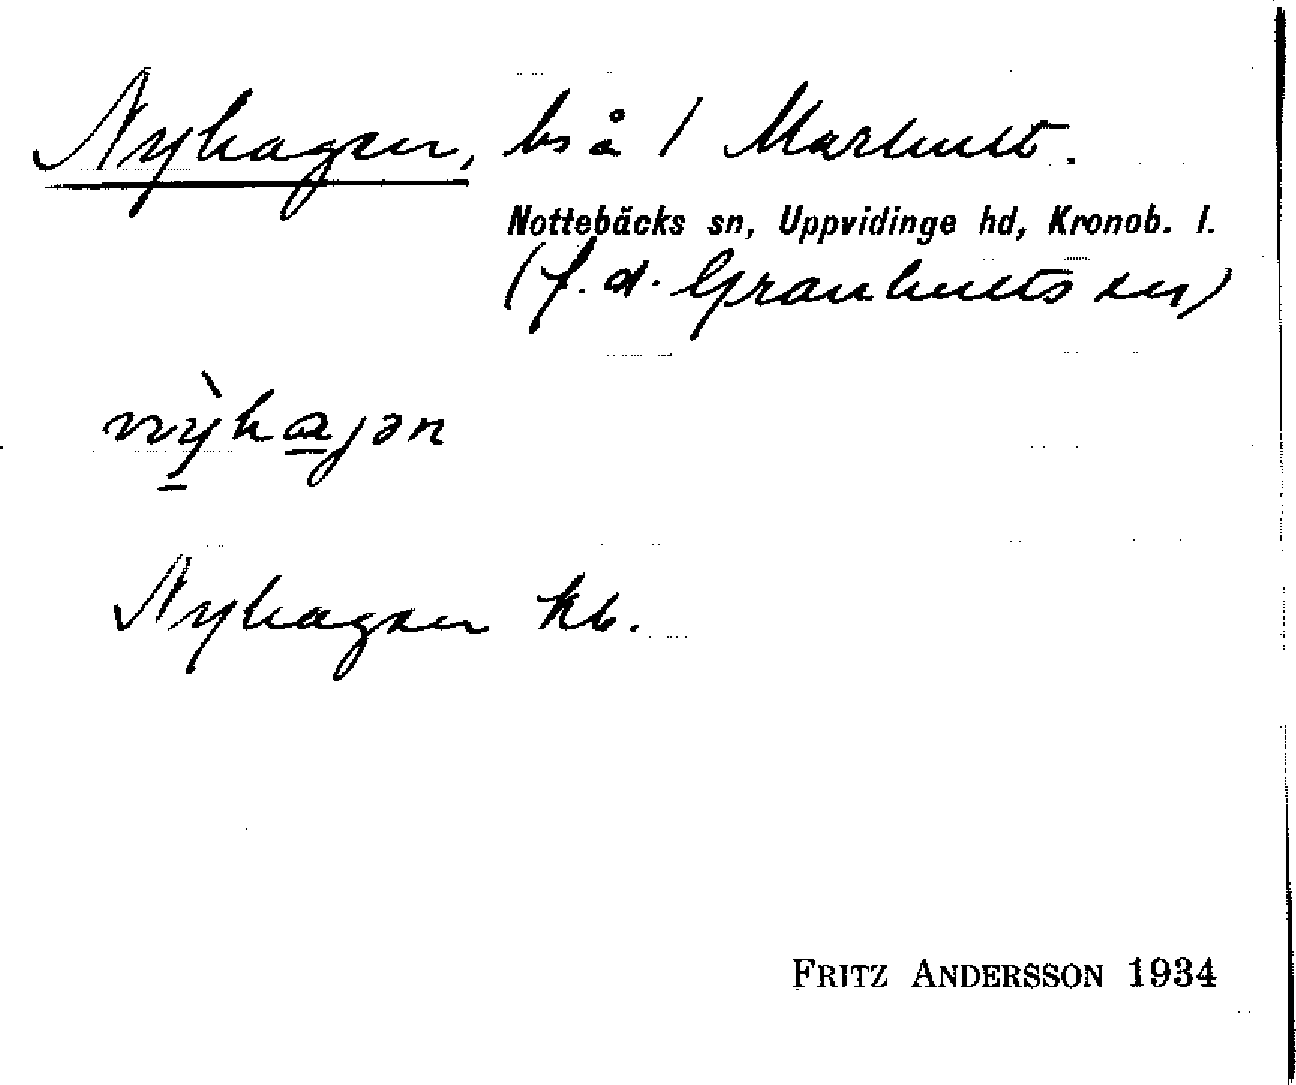 Nyhagen, bs å 1 Marhult.
Nottebäcks sn, Uppvidinge hd, Kronob. l.
(f. d. Granhults sn)
nỳhajən
Nyhagen kb.
FRITZ ANDERSSON 1934